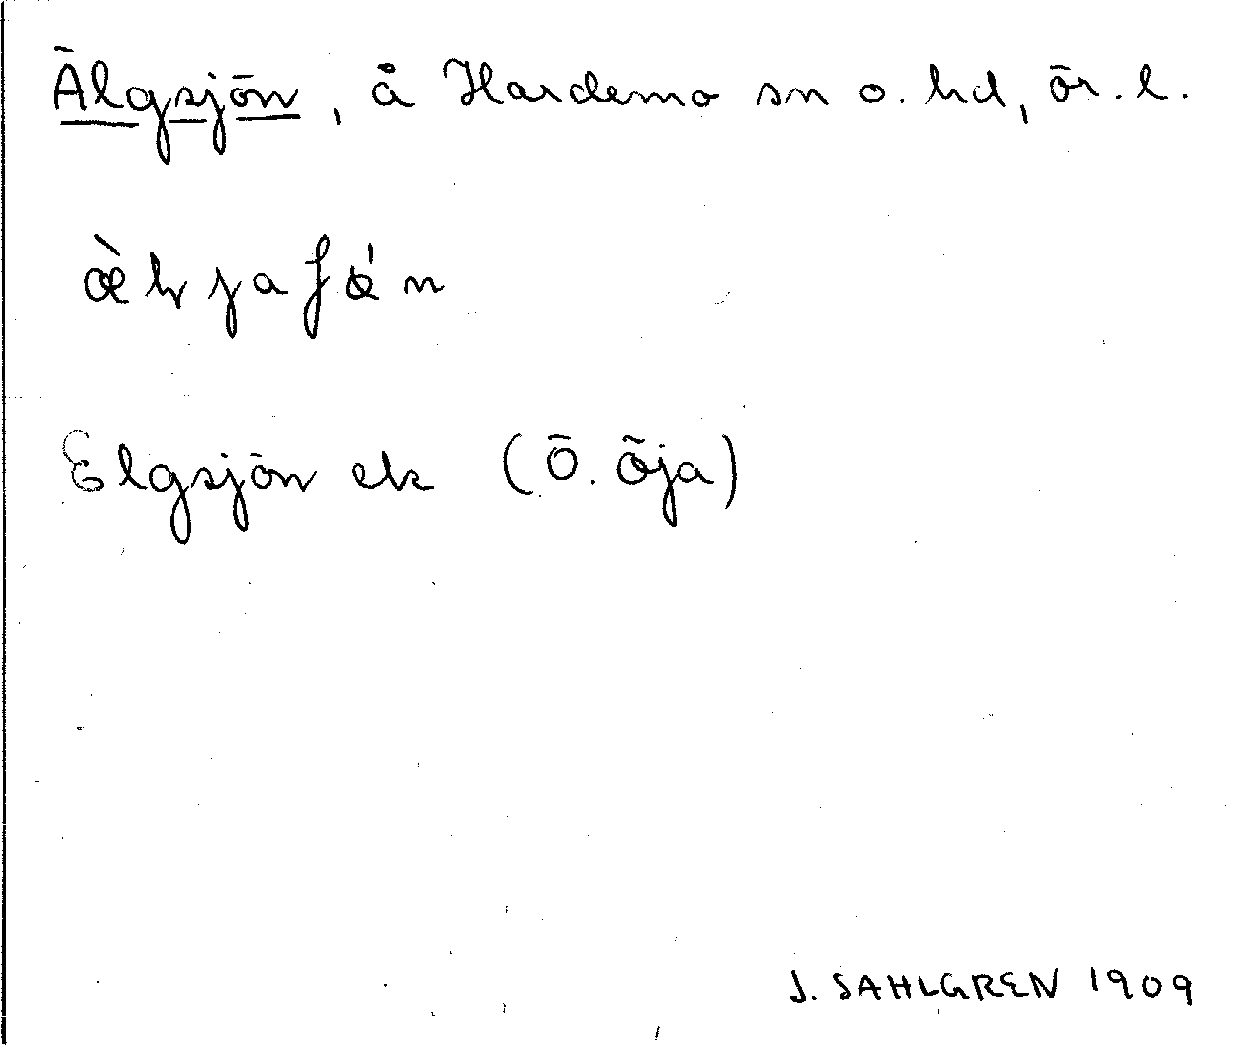 Älgsjön, å Hardemo sn o. hd, ör. l.
Elgsjön ek (Ö. Öja)
J. SAHLGREN 1909